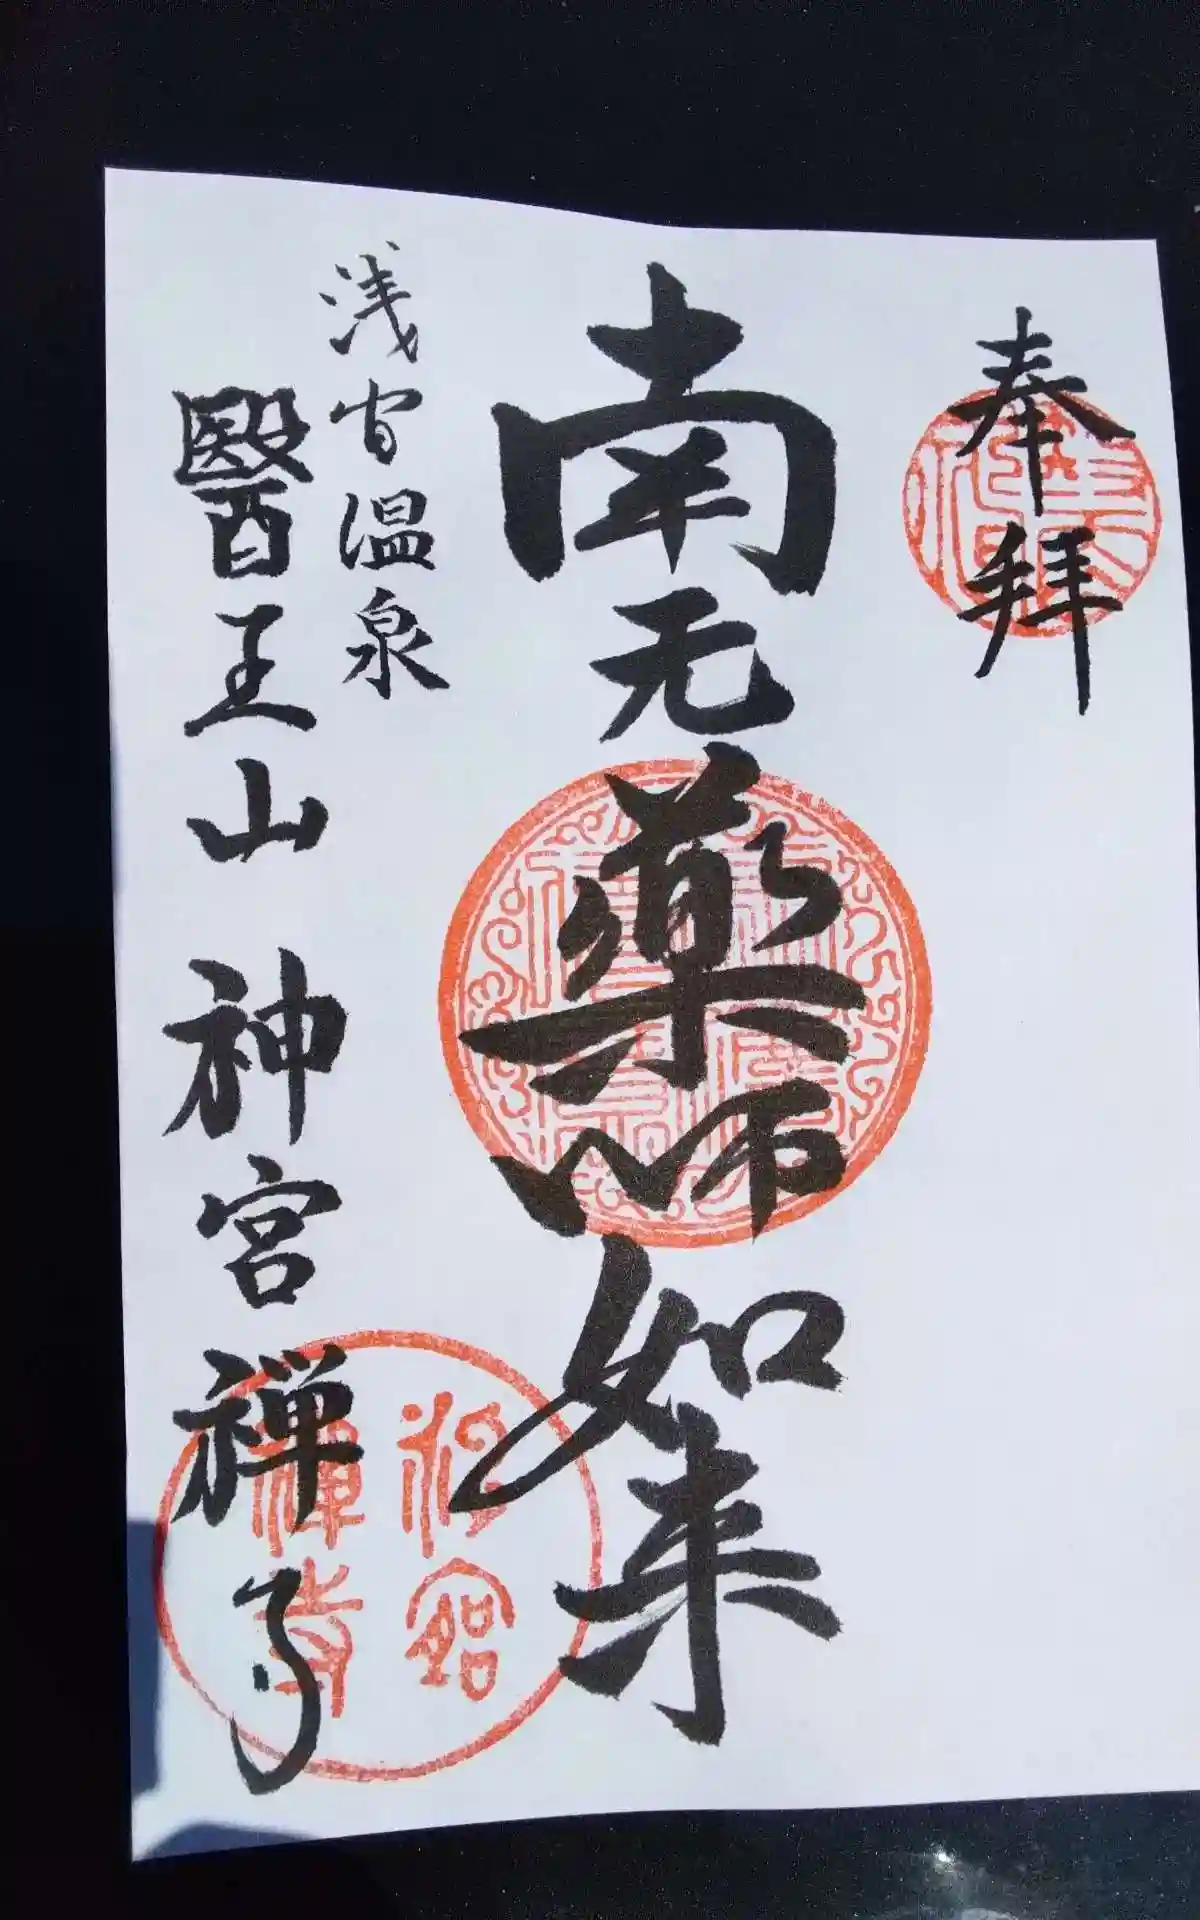 奉拝
南无薬師如来
浅間温泉
醫王山 神宮禅寺
神宮禅寺